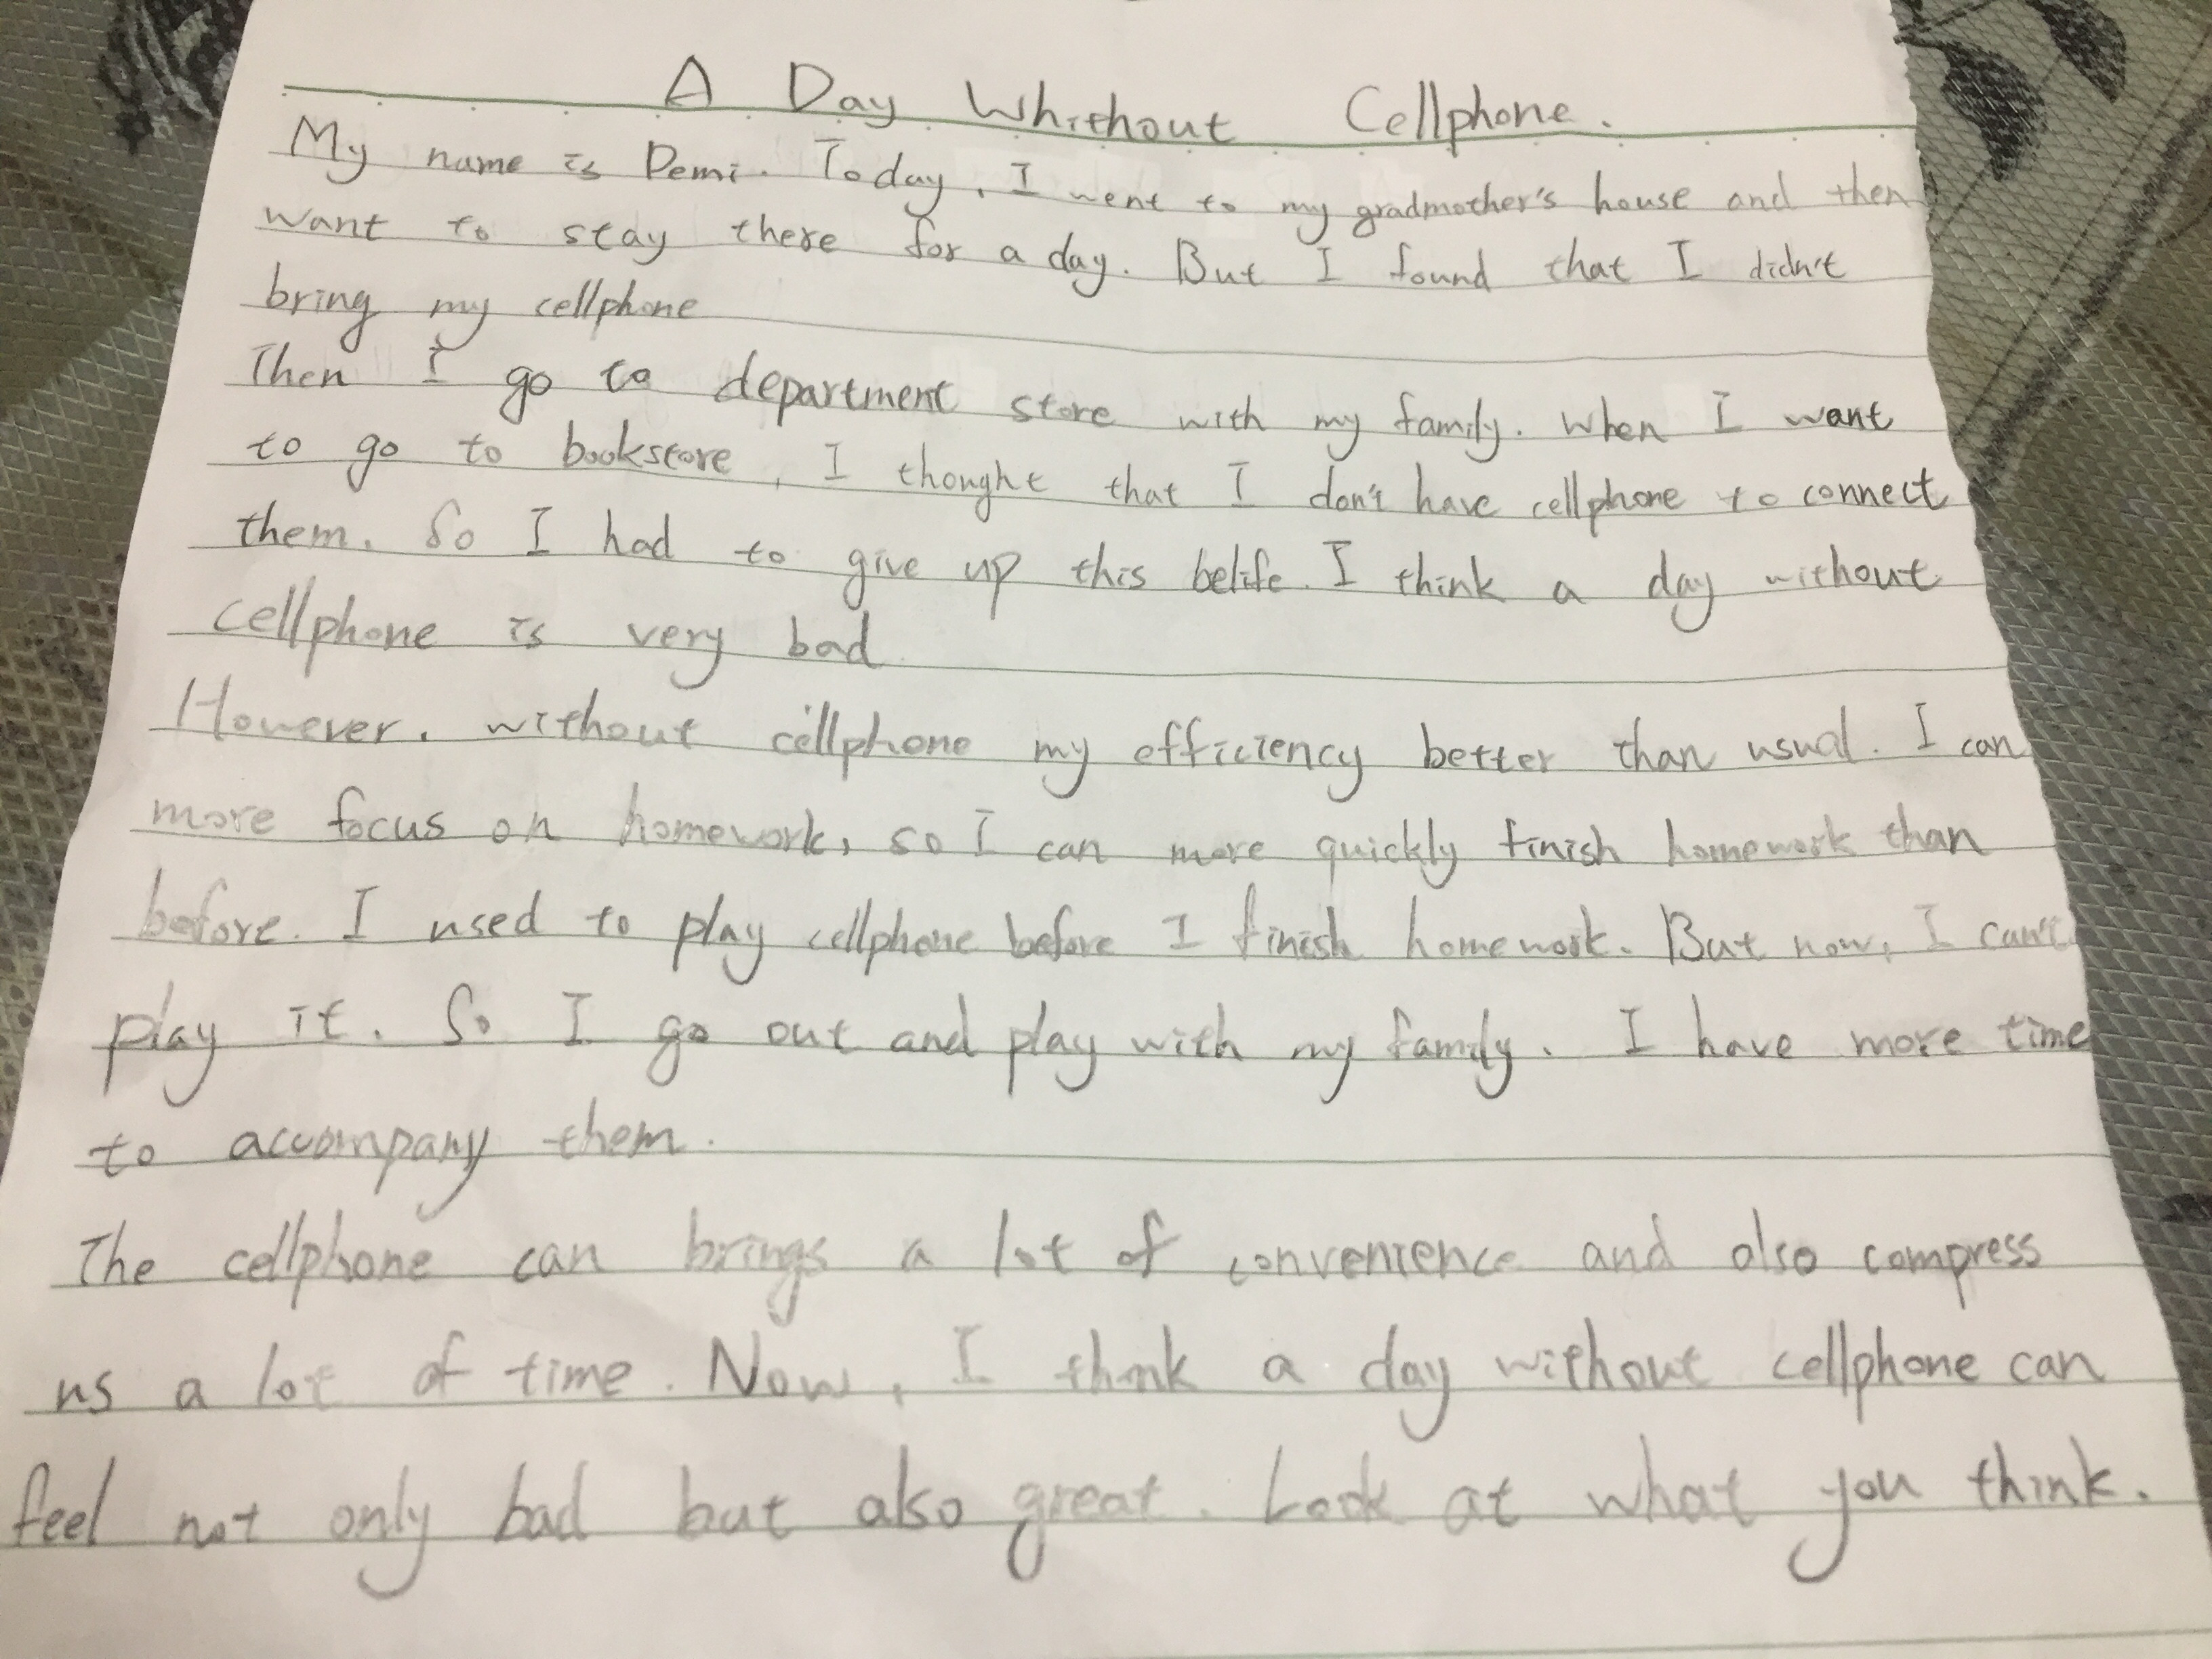 A Day Whithout Cellphone.
My name is Demi. Today, I went to my gradmother's house and then
want to stay there for a day. But I found that I didn't
bring my cellphone
Then I go to department store with my family. When I want
to go to bookstore, I thought that I don't have cellphone to connect
them. So I had to give up this belife. I think a day without
cellphone is very bad
However, without cellphone my efficiency better than usual. I can
more focus on homework, so I can more quickly finish homework than
before. I used to play cellphone before I finish homework. But now, I can't
play it. So I go out and play with my family. I have more time
to accompany them.
The cellphone can brings a lot of convenience and also compress
us a lot of time. Now, I think a day without cellphone can
feel not only bad but also great. Look at what you think.